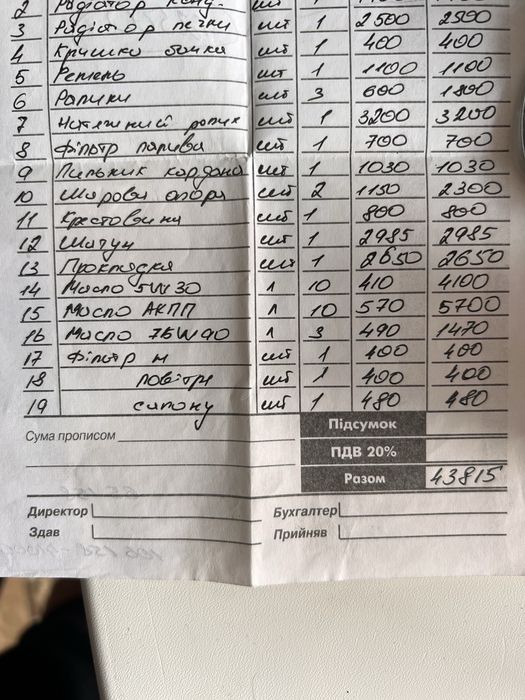 2 Радіатор конд.
3 Радіатор печки шт 1 2500 2500
4 Кришка бачка шт 1 400 400
5 Ремень шт 1 1100 1100
6 Ролики шт 3 600 1800
7 Натяжний ролик шт 1 3200 3200
8 Фільтр палива шт 1 700 700
9 Пильник кардана шт 1 1030 1030
10 Шарова опора шт 2 1150 2300
11 Крестовини шт 1 800 800
12 Шатун шт 1 2985 2985
13 Прокладка шт 1 2650 2650
14 Масло 5W30 л 10 410 4100
15 Масло АКПП л 10 570 5700
16 Масло 75W90 л 3 490 1470
17 Фільтр м шт 1 400 400
18 повітря шт 1 400 400
19 салону шт 1 480 480
Підсумок
Сума прописом
ПДВ 20%
Разом 43815
Директор Бухгалтер
Здав Прийняв